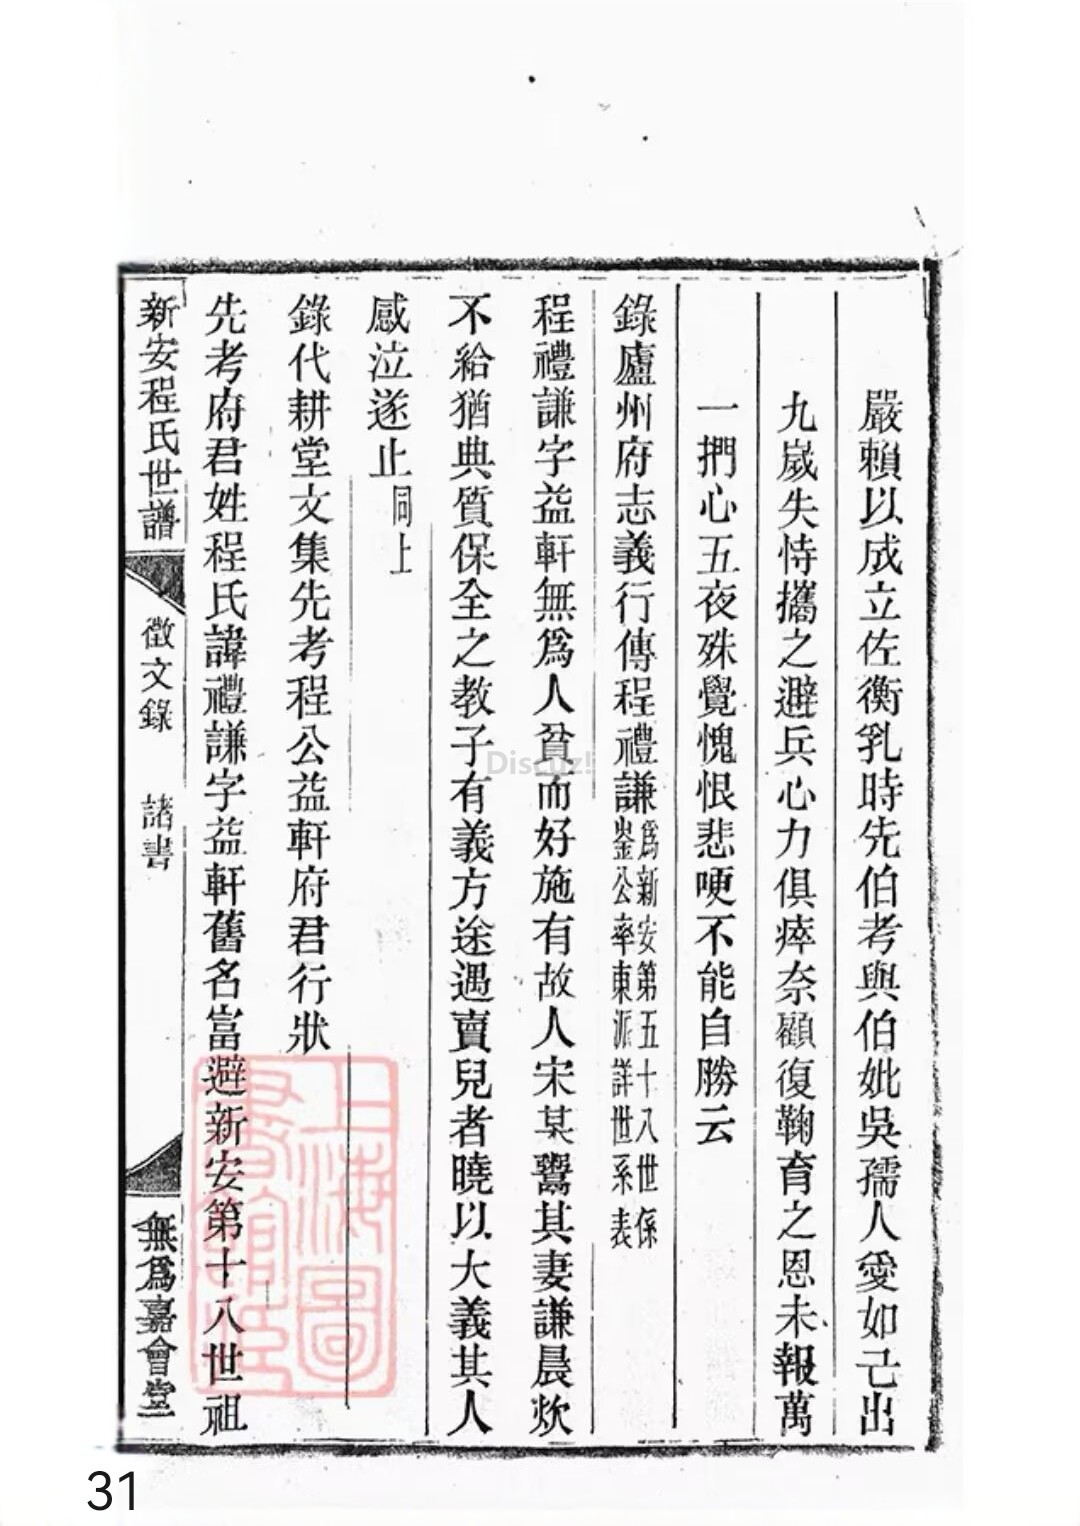 嚴賴以成立佐衡乳時先伯考與伯妣吳孺人愛如己出
九歲失恃攜之避兵心力俱瘁奈顧復鞠育之恩未報萬
一捫心五夜殊覺愧恨悲哽不能自勝云
錄廬州府志義行傳程禮謙為新安第五十八世係
崟公率東派詳世系表
程禮謙字益軒無為人貧而好施有故人宋某鬻其妻謙晨炊
不給猶典質保全之教子有義方途遇賣兒者曉以大義其人
感泣遂止同上
錄代耕堂文集先考程公益軒府君行狀
先考府君姓程氏諱禮謙字益軒舊名富避新安第十八世祖
新安程氏世譜
徵文錄 諸書
無為嘉會堂
上海圖
書館藏
Discuz!
31